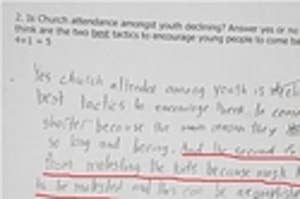 2. Is Church attendance amongst youth declining? Answer yes or no
think are the two best tactics to encourage young people to come ba
4+1 = 5
Yes church attended among youth is
best tactics to encourage them to com
shorter because the main reason they
so long and boring. And the second
from molesting the kids because much
to be molested and this can be accomplished